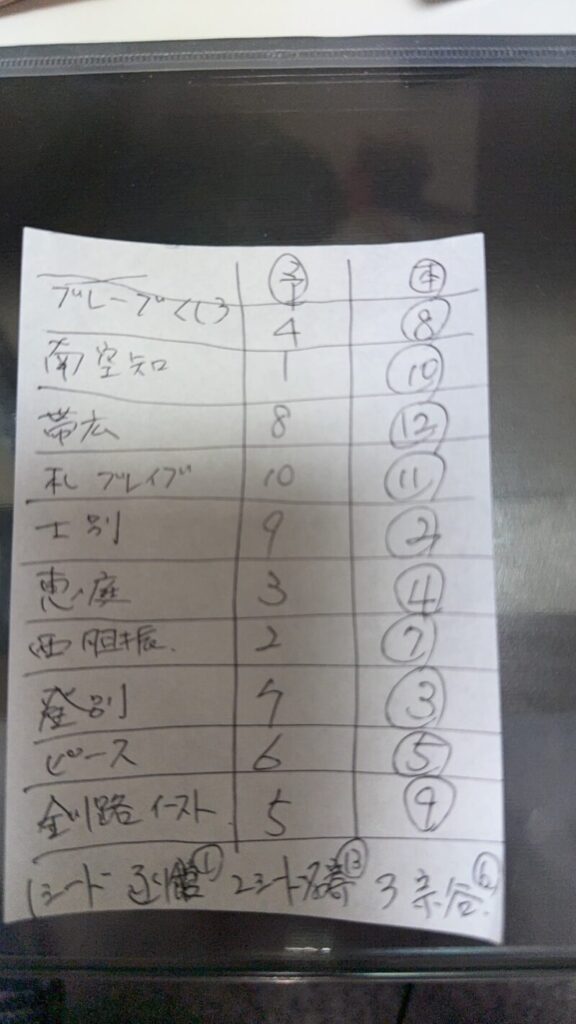 予 本
ブレーブくしろ 4 ⑧
南空知 1 ⑩
帯広 8 ⑫
札 ブレイブ 10 ⑪
士別 9 ②
恵庭 3 ④
西胆振 2 ⑦
登別 7 ③
ピース 6 ⑤
釧路イースト 5 ⑨
1シード 函館① 2シード 名寄⑬ 3 宗谷⑥